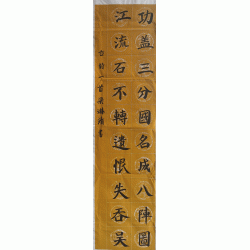 功蓋三分國名成八陣圖
江流石不轉遺恨失吞吴